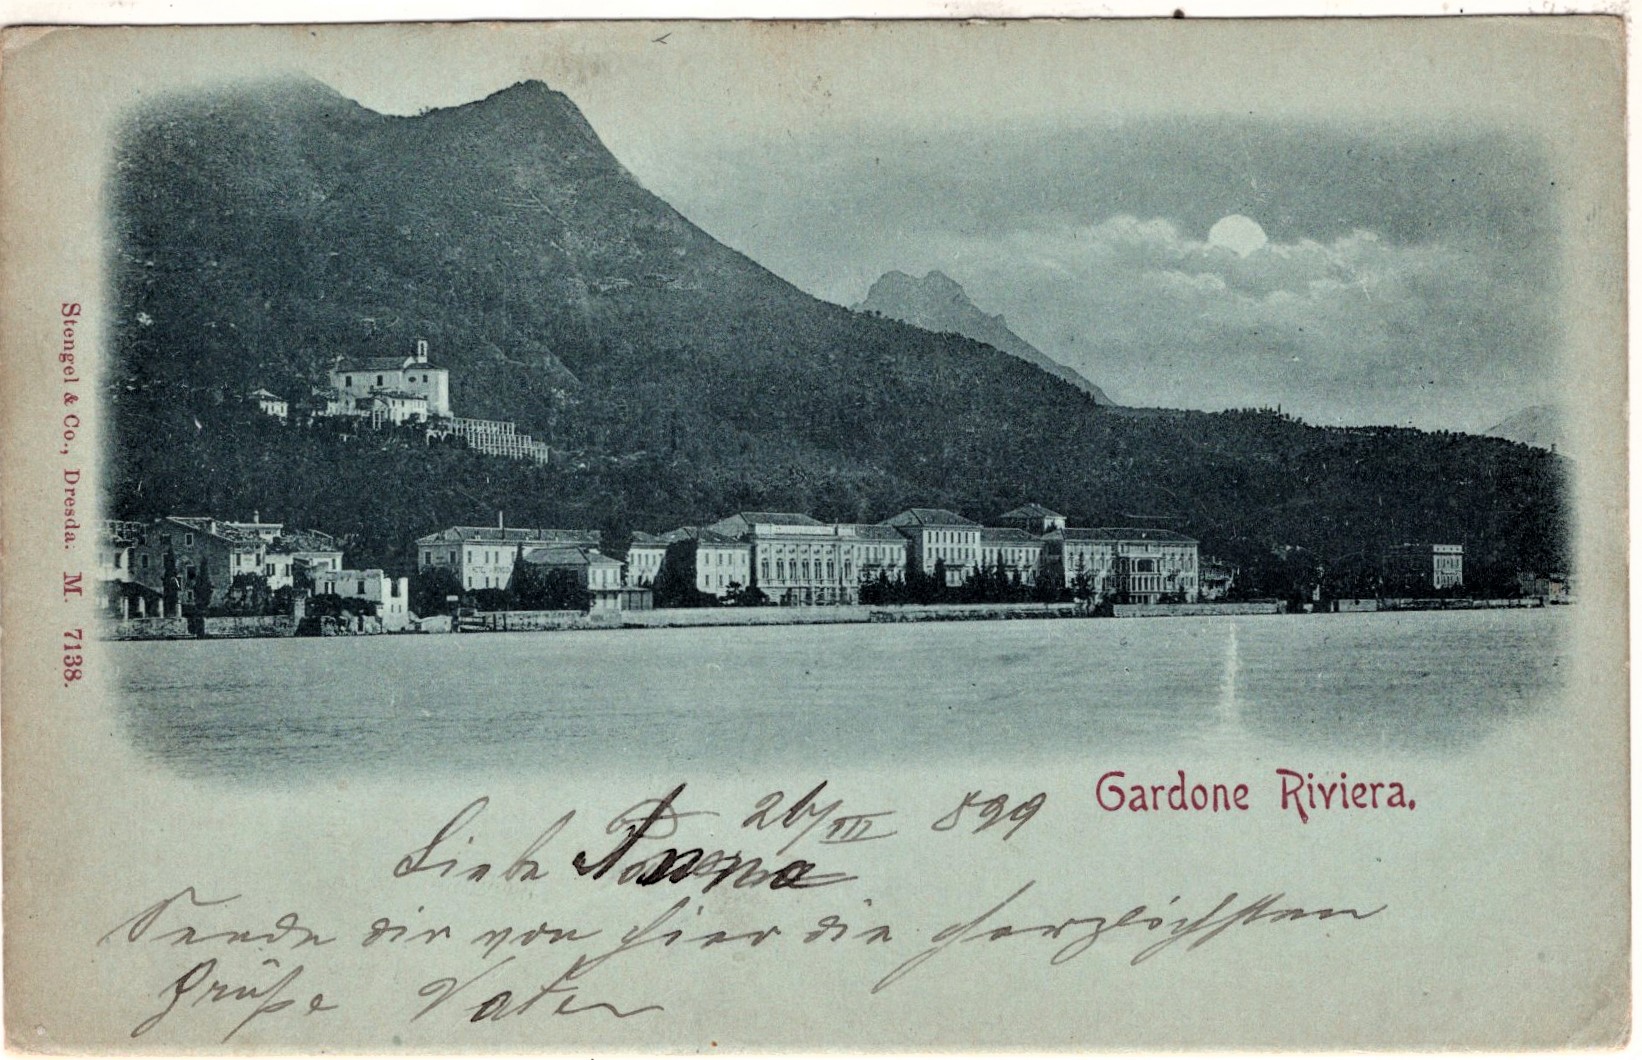 Stengel & Co., Dresda. M. 7138.
Gardone Riviera.
26/III 899
Liebe Anna
Sende dir von hier die herzlichsten
Grüße Vater